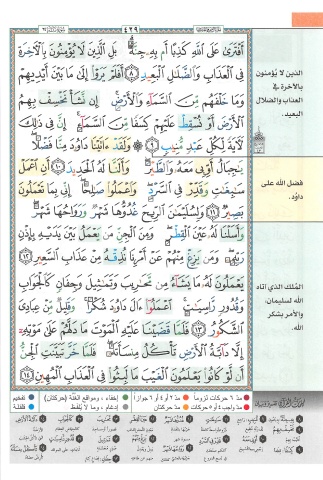 ٤٢٩
أَفْتَرَىٰ عَلَى ٱللَّهِ كَذِبًا أَم بِهِۦ جِنَّةٌۢ ۗ بَلِ ٱلَّذِينَ لَا يُؤْمِنُونَ بِٱلْءَاخِرَةِ
فِى ٱلْعَذَابِ وَٱلضَّلَٰلِ ٱلْبَعِيدِ ٨ أَفَلَمْ يَرَوْا۟ إِلَىٰ مَا بَيْنَ أَيْدِيهِمْ
وَمَا خَلْفَهُم مِّنَ ٱلسَّمَآءِ وَٱلْأَرْضِ ۚ إِن نَّشَأْ نَخْسِفْ بِهِمُ
ٱلْأَرْضَ أَوْ نُسْقِطْ عَلَيْهِمْ كِسَفًا مِّنَ ٱلسَّمَآءِ ۚ إِنَّ فِى ذَٰلِكَ
لَءَايَةً لِّكُلِّ عَبْدٍ مُّنِيبٍ ٩ وَلَقَدْ ءَاتَيْنَا دَاوُۥدَ مِنَّا فَضْلًا ۖ
يَٰجِبَالُ أَوِّبِى مَعَهُۥ وَٱلطَّيْرَ ۖ وَأَلَنَّا لَهُ ٱلْحَدِيدَ ١٠ أَنِ ٱعْمَلْ
سَٰبِغَٰتٍ وَقَدِّرْ فِى ٱلسَّرْدِ ۖ وَٱعْمَلُوا۟ صَٰلِحًا ۖ إِنِّى بِمَا تَعْمَلُونَ
بَصِيرٌ ١١ وَلِسُلَيْمَٰنَ ٱلرِّيحَ غُدُوُّهَا شَهْرٌ وَرَوَاحُهَا شَهْرٌ ۖ
وَأَسَلْنَا لَهُۥ عَيْنَ ٱلْقِطْرِ ۖ وَمِنَ ٱلْجِنِّ مَن يَعْمَلُ بَيْنَ يَدَيْهِ بِإِذْنِ
رَبِّهِۦ ۖ وَمَن يَزِغْ مِنْهُمْ عَنْ أَمْرِنَا نُذِقْهُ مِنْ عَذَابِ ٱلسَّعِيرِ ١٢
يَعْمَلُونَ لَهُۥ مَا يَشَآءُ مِن مَّحَٰرِيبَ وَتَمَٰثِيلَ وَجِفَانٍ كَٱلْجَوَابِ
وَقُدُورٍ رَّاسِيَٰتٍ ۚ ٱعْمَلُوٓا۟ ءَالَ دَاوُۥدَ شُكْرًا ۚ وَقَلِيلٌ مِّنْ عِبَادِىَ
ٱلشَّكُورُ ١٣ فَلَمَّا قَضَيْنَا عَلَيْهِ ٱلْمَوْتَ مَا دَلَّهُمْ عَلَىٰ مَوْتِهِۦٓ
إِلَّا دَآبَّةُ ٱلْأَرْضِ تَأْكُلُ مِنسَأَتَهُۥ ۖ فَلَمَّا خَرَّ تَبَيَّنَتِ ٱلْجِنُّ
أَن لَّوْ كَانُوا۟ يَعْلَمُونَ ٱلْغَيْبَ مَا لَبِثُوا۟ فِى ٱلْعَذَابِ ٱلْمُهِينِ ١٤
الذين لا يؤمنون
بالآخرة في
العذاب والضلال
البعيد.
فضل الله على
داوُد.
المُلك الذي آتاه
الله لسليمان،
والأمر بشكر
الله.
مد ٦ حركات لزوماً مد ٢ أو ٤ أو ٦ جوازاً إخفاء، ومواقع الغُنّة (حركتان) تفخيم
مد واجب ٤ أو ٥ حركات مد حركتان إدغام، وما لا يُلفظ قلقلة